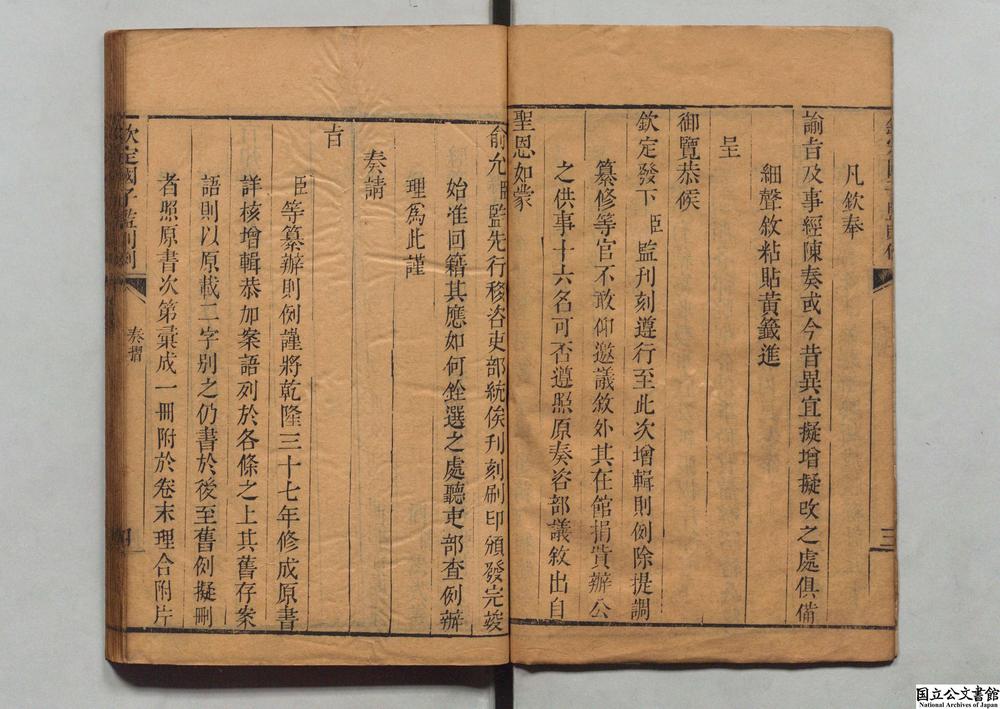 凡欽奉
諭旨及事經陳奏或今昔異宜擬增擬改之處俱備
細聲敘粘貼黃籤進
呈
御覽恭候
欽定發下臣監刊刻遵行至此次增輯則例除提調
纂修等官不敢仰邀議敘外其在館捐貲辦公
之供事十六名可否遵照原奏咨部議敘出自
聖恩如蒙
俞允臣監先行移咨吏部統俟刊刻刷印頒發完竣
始准回籍其應如何銓選之處聽吏部查例辦
理為此謹
奏請
旨
臣等纂辦則例謹將乾隆三十七年修成原書
詳核增輯恭加案語列於各條之上其舊存案
語則以原載二字別之仍書於後至舊例擬刪
者照原書次第彙成一冊附於卷末理合附片
欽定國子監則例
奏摺
国立公文書館
National Archives of Japan